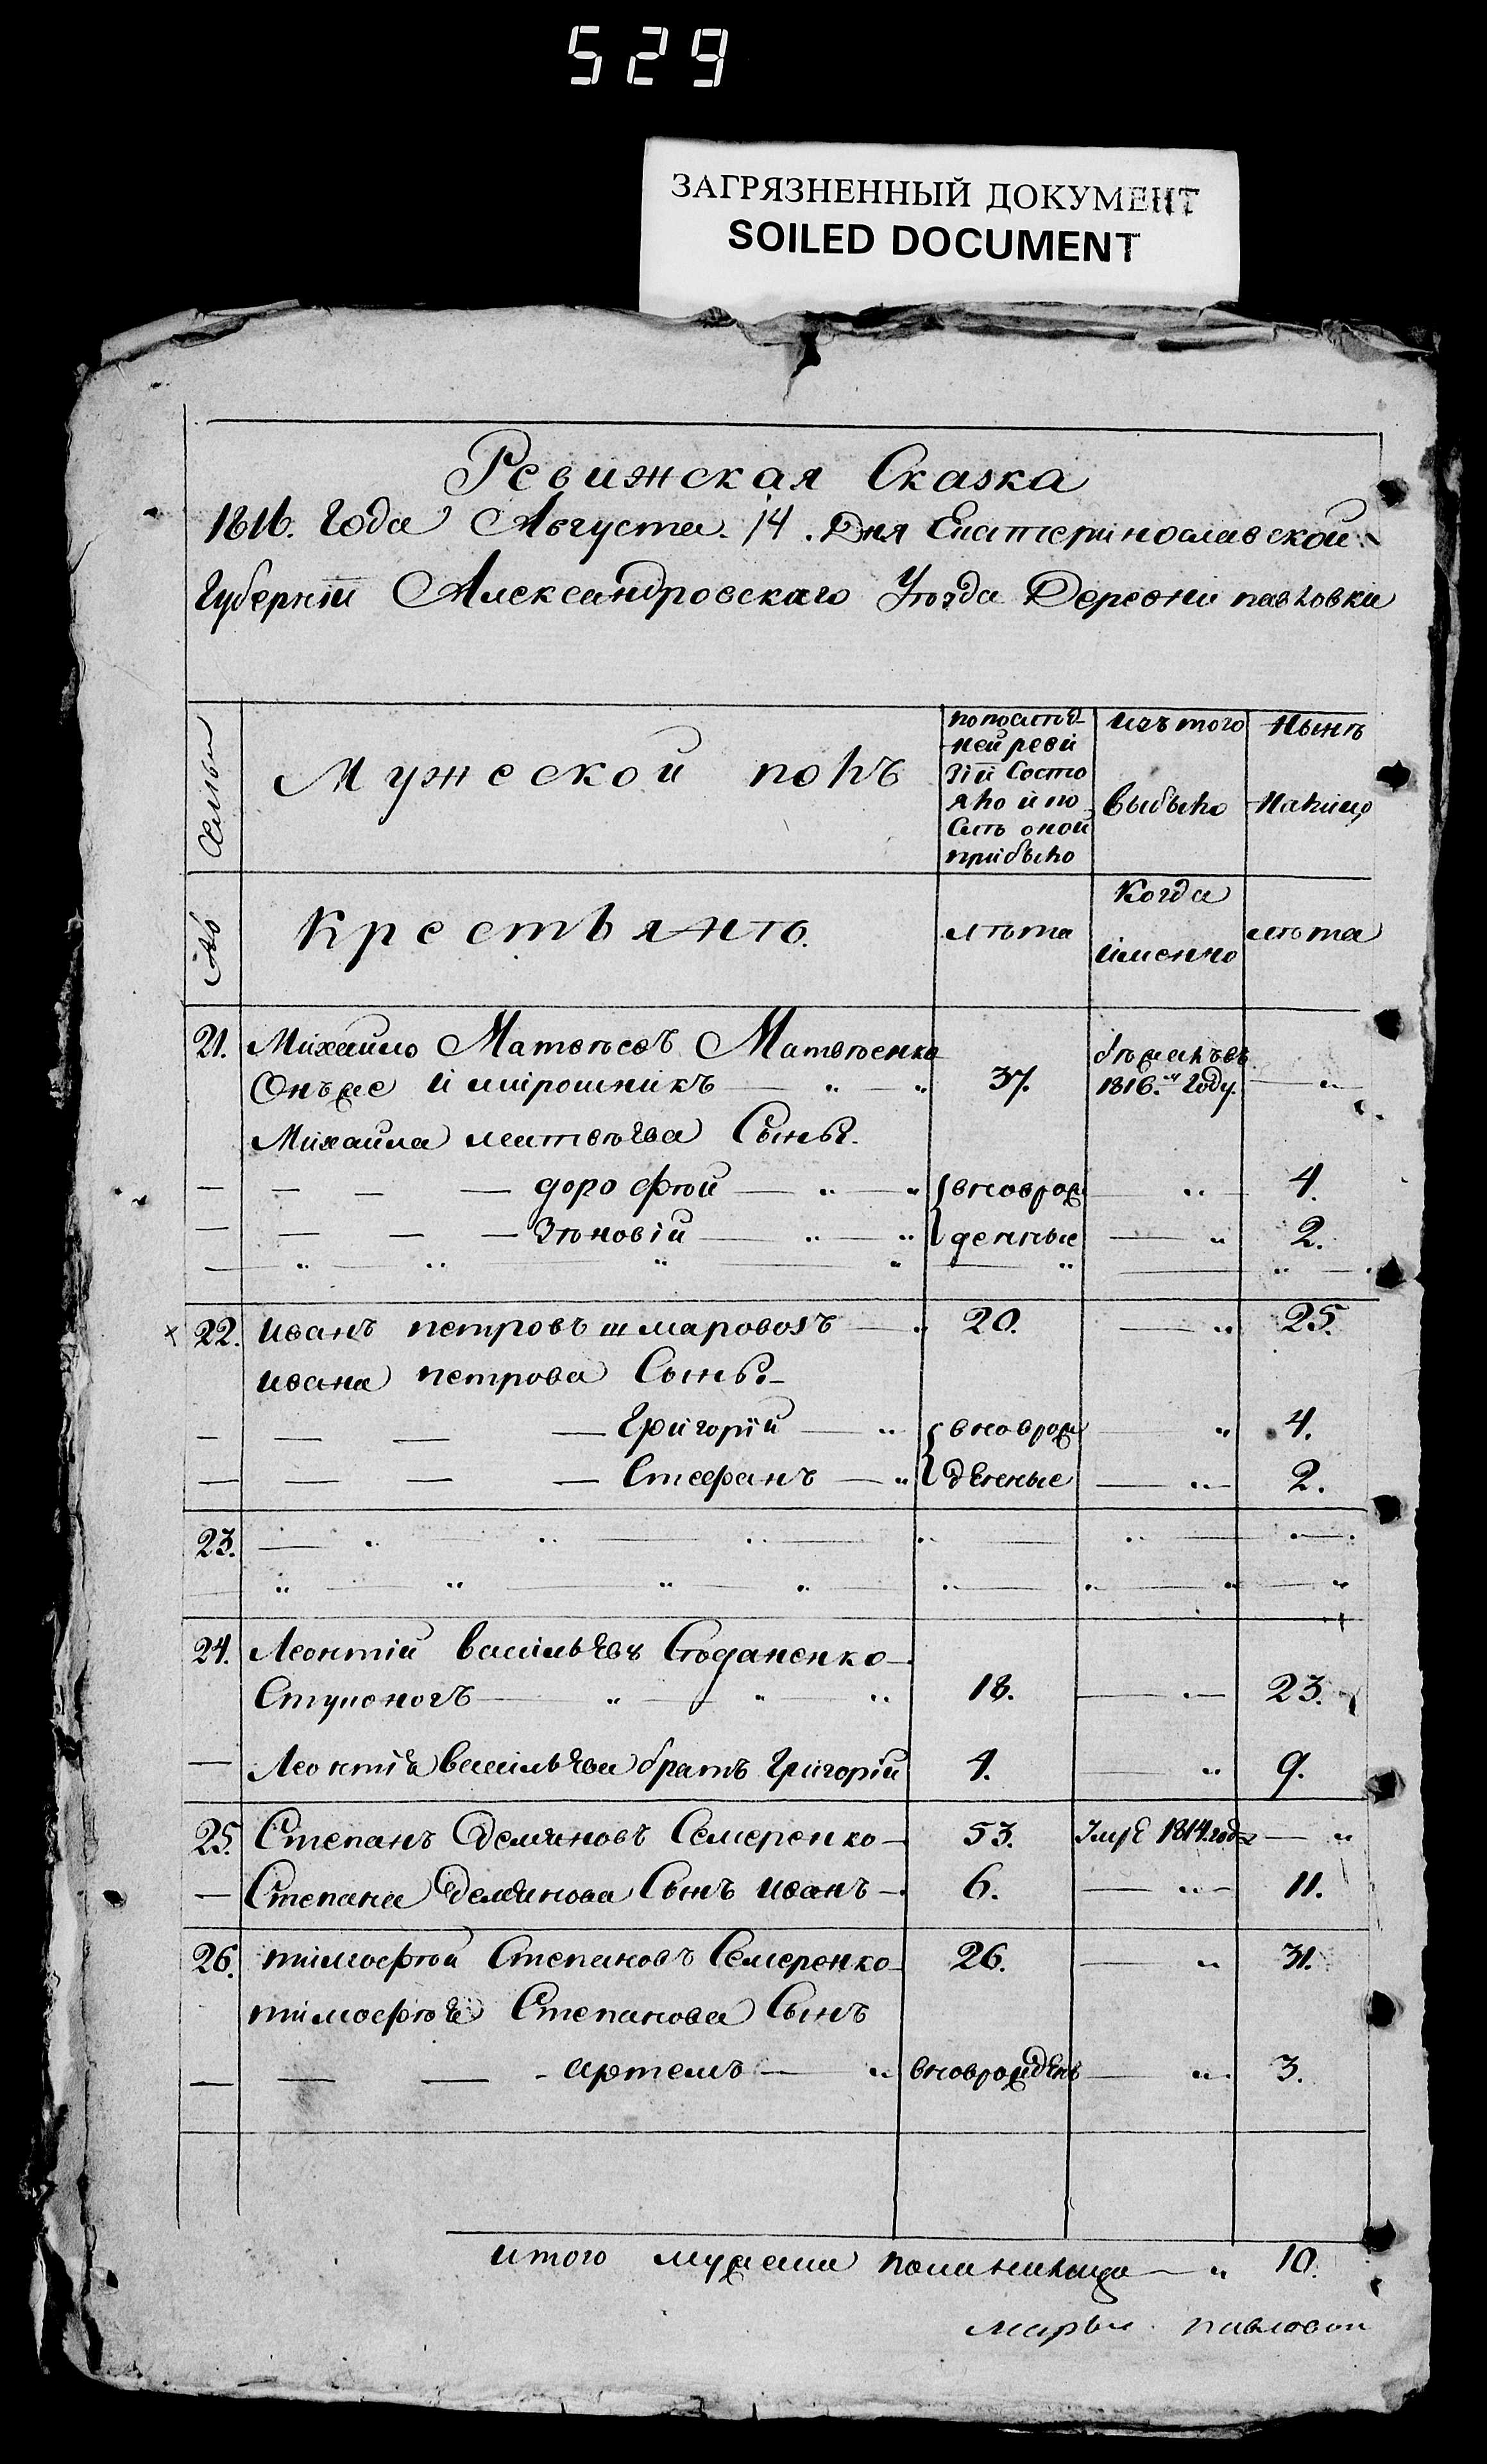 529
ЗАГРЯЗНЕННЫЙ ДОКУМЕНТ
SOILED DOCUMENT
Ревижская Сказка
1816. Года Августа. 14. Дня Екатеринославской
Губернїи Александровскаго Уѣзда Деревни павловки
Семьи
Мужеской полъ
по послѣд-
ней реви
зїи Состо
яло и по
слѣ оной
прибыло
изъ того
выбыло
Нынѣ
налицо
№
Крестьянѣ.
лѣта
Когда
именно
лѣта
21. Михайло Матвѣевъ Матвѣенко
Онъже и мирошникъ — " — " 37. бѣжалъ въ 1816.м Году. — "
Михайла матвѣева Сынья.
— — — — дорофѣй — " — " вноврож — " — 4.
— — — — Зѣновїй — " — " денные — " 2.
22. иванъ петровъ шмаровозъ — " 20. — " 25.
ивана петрова Сынья.
— — — — Григорїй — " вноврож " 4.
— — — — Стефанъ — " денные — " — 2.
23. — " — " — " — " — " — " — "
24. Леонтїй васильевъ Стоданенко —
Ступоногъ — " — " " 18. — " — 23.
— Леонтїя васильева братъ Григорїй 4. — " 9.
25. Степанъ Демяновъ Семеренко — 53. Умре 1814. года — "
— Степана Демянова Сынъ иванъ — 6. — " — 11.
26. тимофѣй Степановъ Семеренко — 26. — " 31.
тимофѣя Степанова Сынъ
— — — - артемъ — " вноврожденъ — " 3.
итого мужеска пола налицо — " 10.
марьи павловой